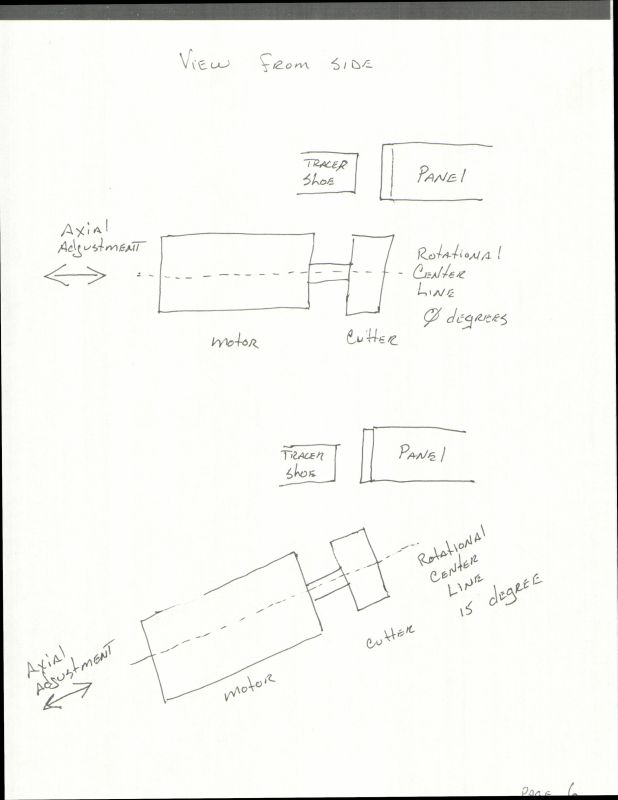 View From Side
TRACER
Shoe
PANEl
Axial
Adjustment
Rotational
Center
Line
Ø degrees
motor
Cutter
TRACER
Shoe
PANEl
Rotational
Center
Line
15 degree
Cutter
Axial
Adjustment
motor
Page 6